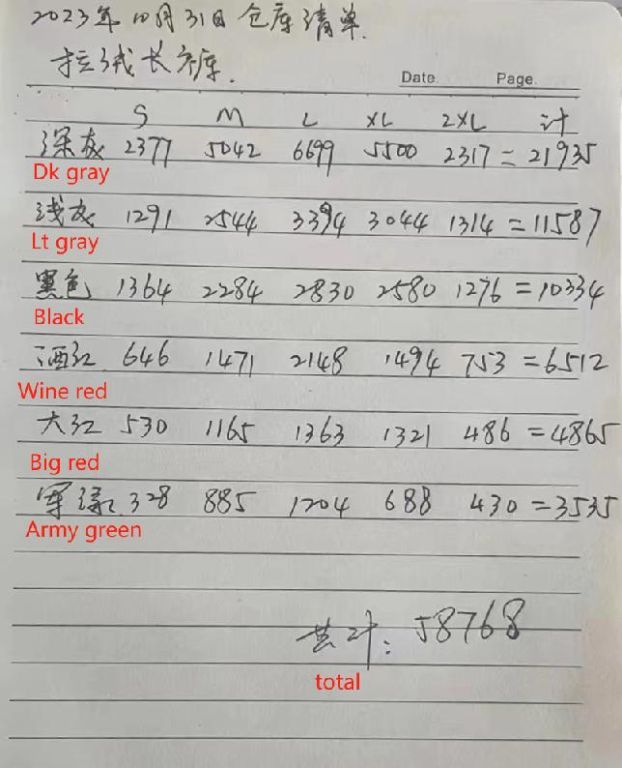 2023年10月31日仓库清单.
拉绒长裤.
Date. Page.
S M L XL 2XL 计
深灰 2377 5042 6699 5500 2317 = 21935
Dk gray
浅灰 1291 2544 3394 3044 1314 = 11587
Lt gray
黑色 1364 2284 2830 2580 1276 = 10334
Black
酒红 646 1471 2148 1494 753 = 6512
Wine red
大红 530 1165 1363 1321 486 = 4865
Big red
军绿 328 885 1204 688 430 = 3535
Army green
共计: 58768
total